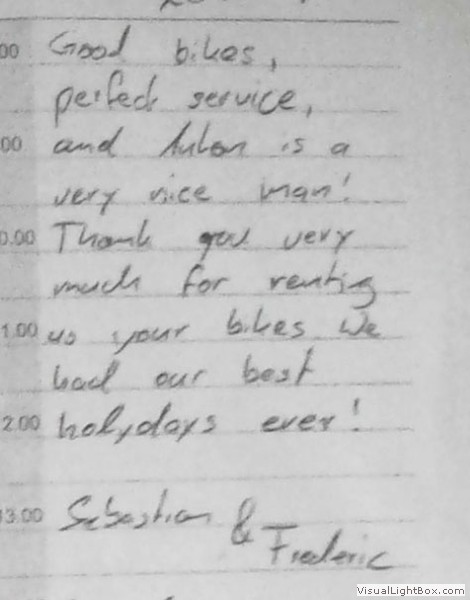 00 Good bikes,
perfect service,
00 and Anton is a
very nice man!
0.00 Thank you very
much for renting
1.00 us your bikes We
had our best
2.00 holydays ever!
3.00 Sebastian &
Frederic
VisualLightBox.com